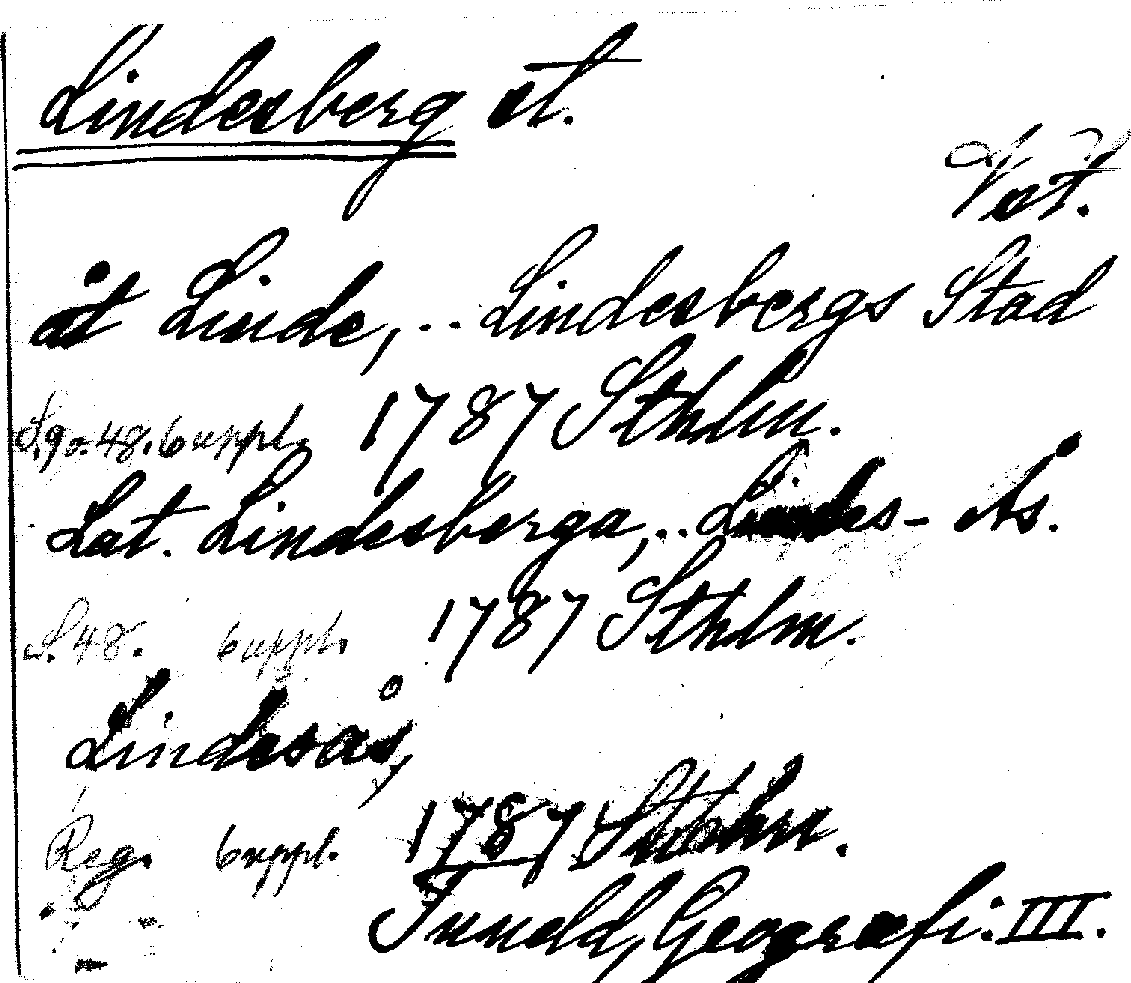 Lindesberg st.
Vst.
åt Linde, .. Lindesbergs Stad
S. 90.48. 6 uppl. 1787 Sthlm.
Lat. Lindesberga, .. Lindes- Ås.
S. 48. 6 uppl. 1787 Sthlm.
Lindesås,
Reg. 6 uppl. 1787 Sthlm.
Tuneld, Geografi. III.